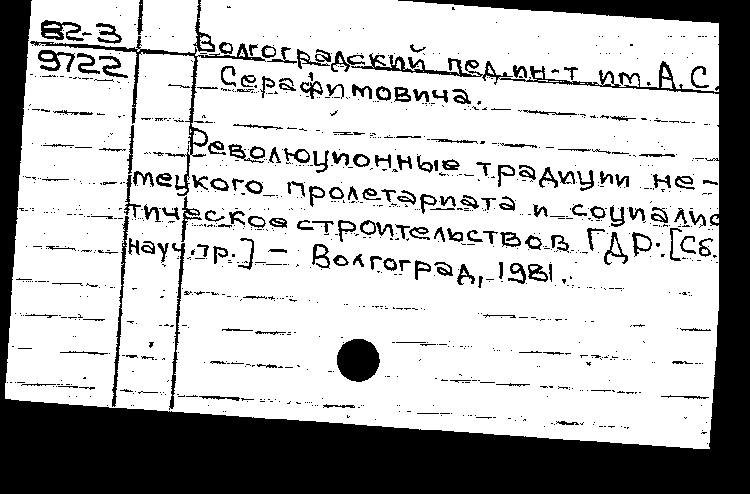 В2-3
9722
Волгоградский пед.ин-т им.А.С.
Серафимовича.
Революционные традиции не-
мецкого пролетариата и социалис
тическое строительство в ГДР:[Сб.
науч.тр.] – Волгоград, 1981.